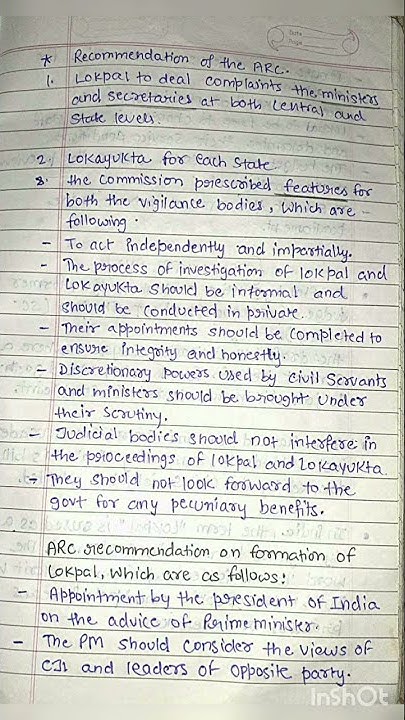 Date
Page
* Recommendation of the ARC.
1. Lokpal to deal complaints the ministers
and secretaries at both central and
state levels.
2. Lokayukta for each state
3. the commission prescribed features for
both the vigilance bodies, which are -
following.
- To act independently and impartially.
- The process of investigation of lokpal and
Lokayukta should be informal and
should be conducted in private.
- Their appointments should be completed to
ensure integrity and honestly.
- Discretionary powers used by civil servants
and ministers should be brought under
their scrutiny.
- Judicial bodies should not interfere in
the proceedings of lokpal and Lokayukta.
- They should not look forward to the
govt for any pecuniary benefits.
ARC recommendation on formation of
Lokpal, which are as follows:
- Appointment by the president of India
on the advice of Prime minister.
- The PM should consider the views of
CJI and leaders of opposite party.
InShot